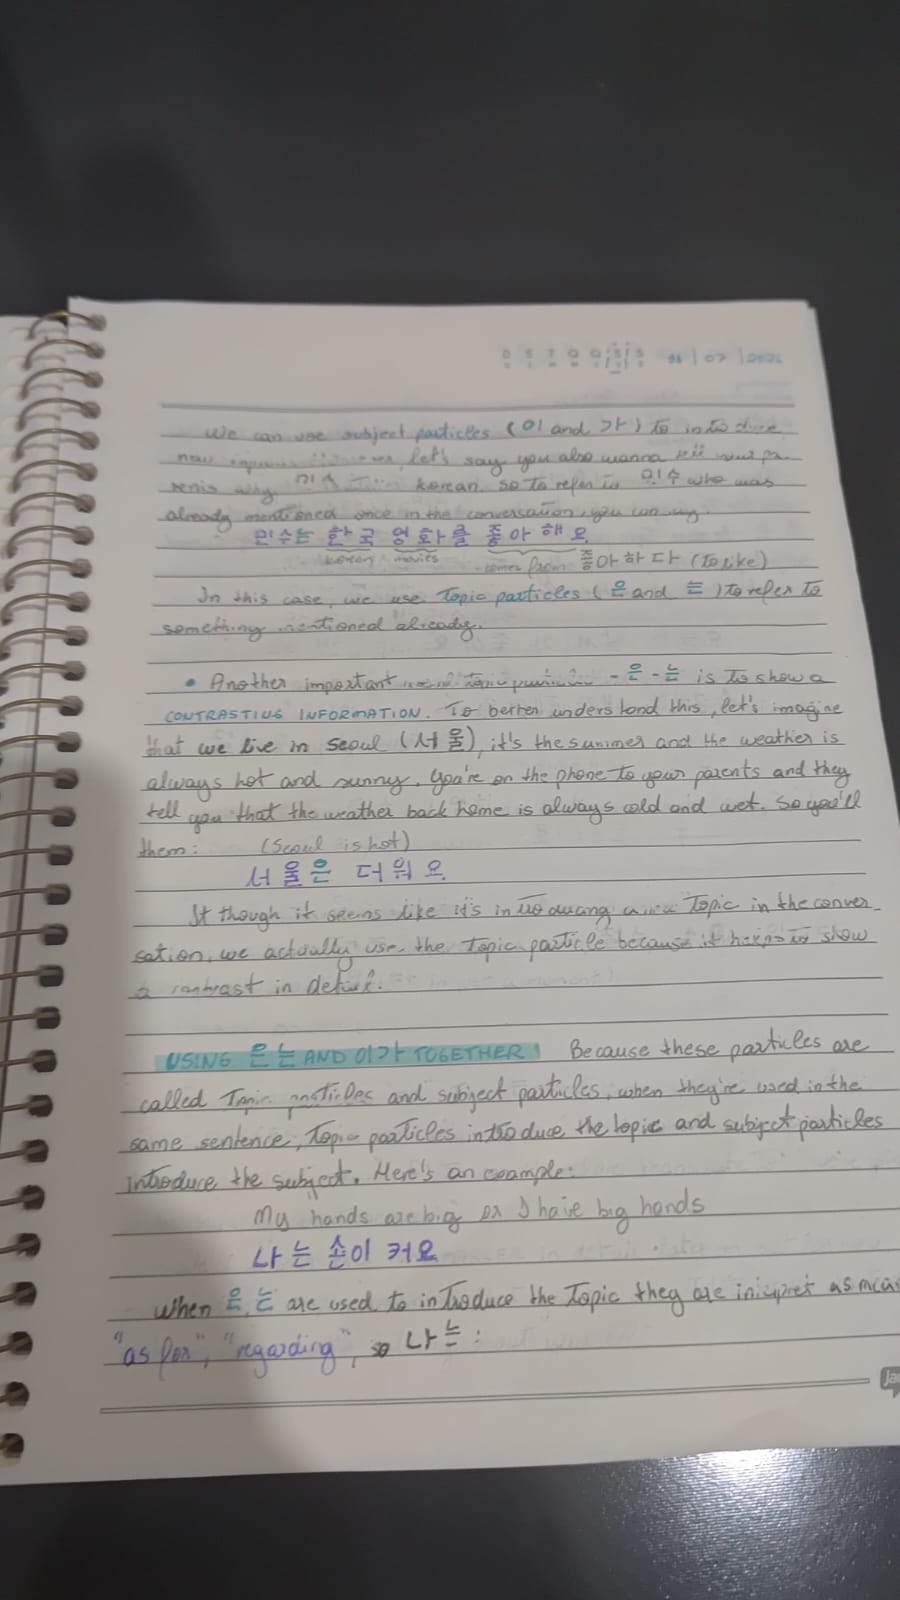 D S T Q Q S S 11 | 07 | 2025
We can use subject particles (이 and 가) to introduce
new let's say you also wanna tell your pa-
rents why 민수 korean. So to refer to 민수 who was
already mentioned once in the conversation, you can say:
민수는 한국 영화를 좋아해요
korean movies comes from 좋아하다 (to like)
In this case, we use Topic particles (은 and 는) to refer to
something mentioned already.
• Another important -은 -는 is to show a
CONTRASTING INFORMATION. To better understand this, let's imagine
that we live in Seoul (서울), it's the summer and the weather is
always hot and sunny. You're on the phone to your parents and they
tell you that the weather back home is always cold and wet. So you'll
them: (Seoul is hot)
서울은 더워요
It though it seems like it's introducing a new Topic in the conver-
sation, we actually use the Topic particle because it helps to show
a contrast in detail.
USING 은 는 AND 이 가 TOGETHER Because these particles are
called Topic particles and subject particles, when they're used in the
same sentence, Topic particles introduce the topic and subject particles
introduce the subject. Here's an example:
My hands are big or I have big hands
나는 손이 커요
When 은, 는 are used to introduce the Topic they are as
"as for", "regarding", so 나는: